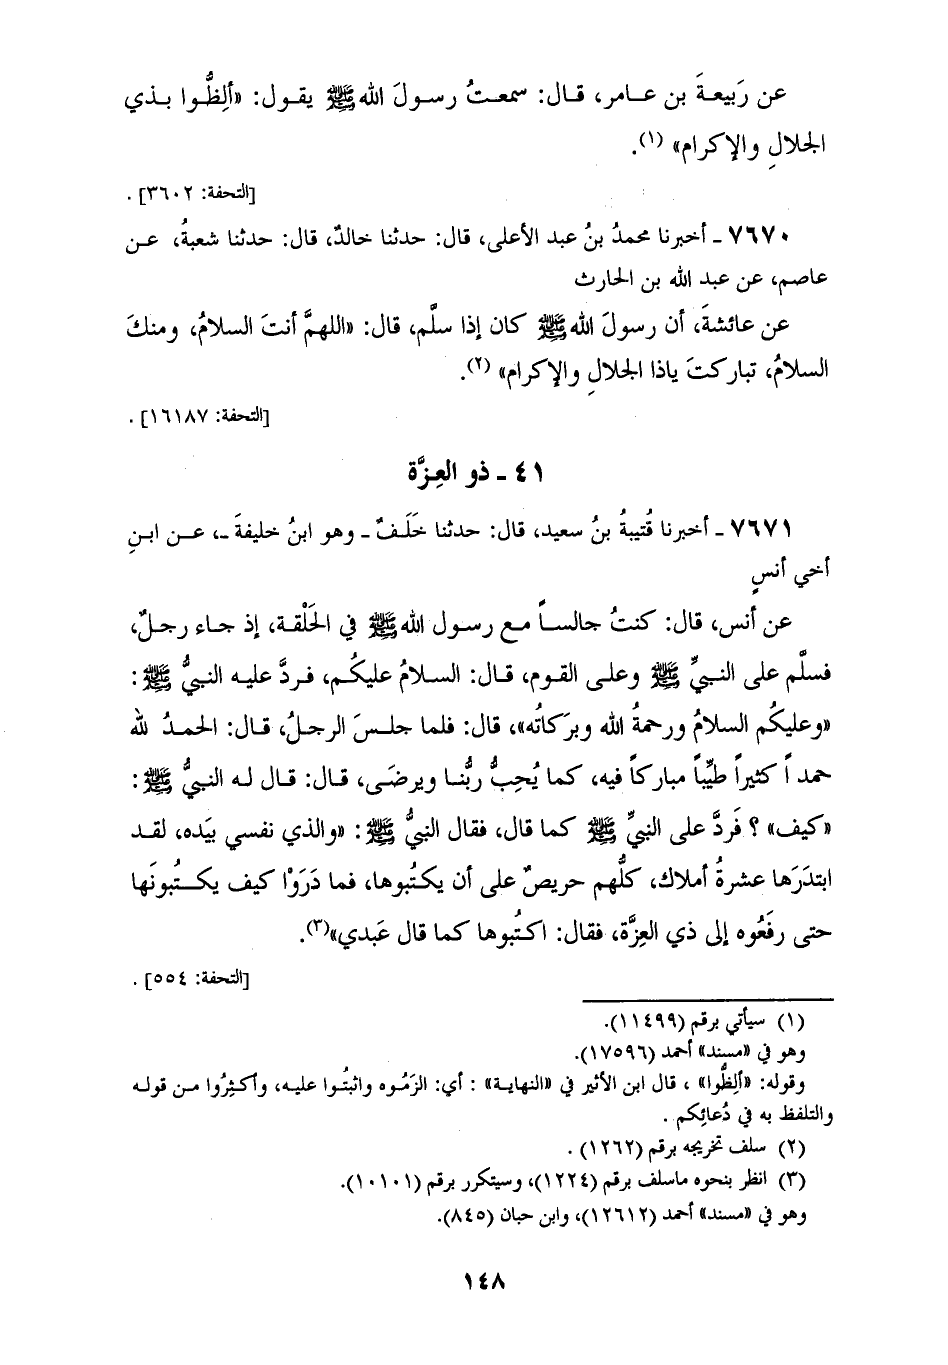 عن رَبيعةَ بن عـامر، قـال: سمعـتُ رسـولَ اللهﷺ يقـول: «ألِظُّـوا بـذي
الجلالِ والإكرام» (١).
[التحفة: ٣٦٠٢] .
٧٦٧٠ ـ أخبرنا محمدُ بنُ عبد الأعلى، قال: حدثنا خالدٌ، قال: حدثنا شعبةُ، عـن
عاصم، عن عبد الله بن الحارث
عن عائشةَ، أن رسولَ اللهﷺ كان إذا سلَّم، قال: «اللهمَّ أنتَ السلامُ، ومنكَ
السلامُ، تباركتَ ياذا الجلالِ والإكرام» (٢).
[التحفة: ١٦١٨٧] .
٤١ ـ ذو العِزَّة
٧٦٧١ ـ أخبرنا قُتيبةُ بنُ سعيد، قال: حدثنا خَلَفٌ ـ وهو ابنُ خليفةَ ـ، عـن ابنِ
أخي أنسٍ
عن أنس، قال: كنتُ جالسـاً مـع رسـول اللهﷺ في الحَلْقـة، إذ جـاء رجـلٌ،
فسلَّم على النـبيِّ ﷺ وعلـى القوم، قـال: السـلامُ عليكُـم، فـردَّ عليـه النبيُّ ﷺ :
«وعليكُم السلامُ ورحمةُ الله وبرَكاتُه»، قال: فلما جلـسَ الرجلُ، قـال: الحمـدُ لله
حمداً كثيراً طيِّباً مباركاً فيه، كما يُحِبُّ ربُّنـا ويرضَـى، قـال: قـال لـه النبيُّ ﷺ :
«كيف» ؟ فَردَّ على النبيِّ ﷺ كما قال، فقال النبيُّ ﷺ : «والذي نفسي بيَده، لقـد
ابتدَرَها عشرةُ أملاك، كلُّهم حريصٌ على أن يكتُبوها، فما دَرَوْا كيف يكـتُبونَها
حتى رفَعُوه إلى ذي العِزَّة، فقال: اكتُبوها كما قال عَبدي»(٣).
[التحفة: ٥٥٤] .
(١) سيأتي برقم (١١٤٩٩).
وهو في «مسند» أحمد (١٧٥٩٦).
وقوله: «ألِظُّوا» ، قال ابن الأثير في «النهاية» : أي: الزَمُوه واثبتُوا عليـه، وأكـثِرُوا مـن قولـه
والتلفظ به في دُعائِكم .
(٢) سلف تخريجه برقم (١٢٦٢) .
(٣) انظر بنحوه ماسلف برقم (١٢٢٤)، وسيتكرر برقم (١٠١٠١).
وهو في «مسند» أحمد (١٢٦١٢)، وابن حبان (٨٤٥).
١٤٨